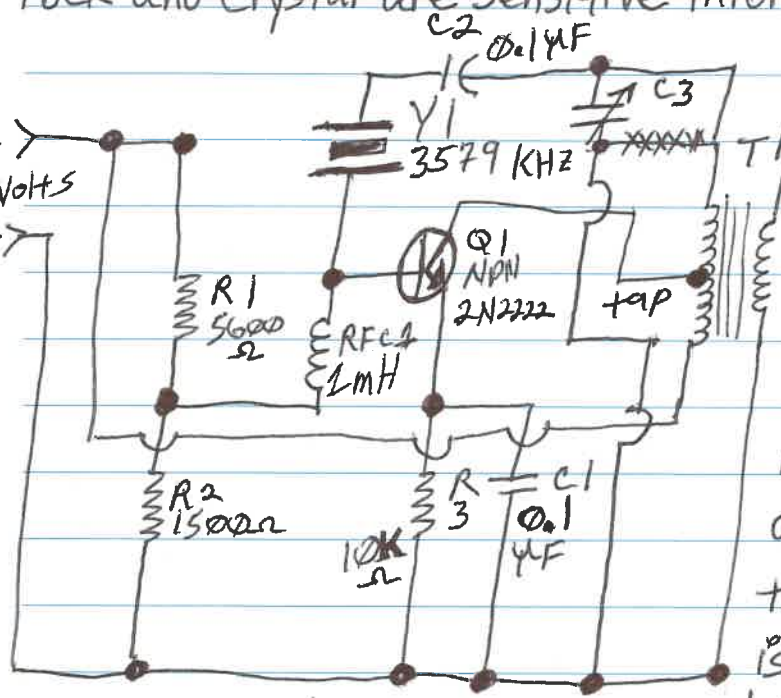 rock and crystal are sensitive
C2
0.1µF
C3
Y1
3579 KHZ
T1
Volts
Q1
NPN
2N2222
tap
R1
5600
Ω
RFC1
1mH
R2
1500Ω
R
3
10K
Ω
C1
0.1
µF